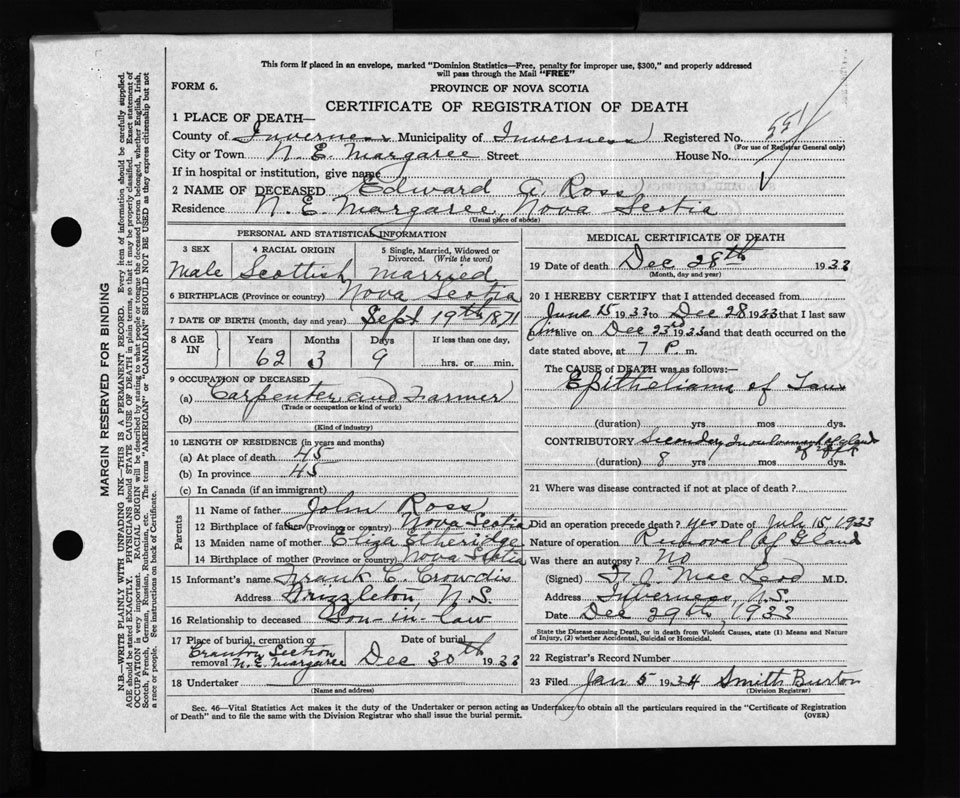 This form if placed in an envelope, marked "Dominion Statistics—Free, penalty for improper use, $300," and properly addressed
will pass through the Mail "FREE"
FORM 6. PROVINCE OF NOVA SCOTIA
CERTIFICATE OF REGISTRATION OF DEATH
1 PLACE OF DEATH—
County of Inverness Municipality of Inverness Registered No. 551
(For use of Registrar General only)
City or Town N. E. Margaree Street House No.
If in hospital or institution, give name
2 NAME OF DECEASED Edward A. Ross
Residence N. E. Margaree, Nova Scotia
(Usual place of abode)
PERSONAL AND STATISTICAL INFORMATION
3 SEX 4 RACIAL ORIGIN 5 Single, Married, Widowed or
Divorced. (Write the word)
Male Scottish married
6 BIRTHPLACE (Province or country) Nova Scotia
7 DATE OF BIRTH (month, day and year) Sept 19th 1871
8 AGE IN Years Months Days If less than one day,
62 3 9 hrs. or min.
9 OCCUPATION OF DECEASED
(a) Carpenter and Farmer
(Trade or occupation or kind of work)
(b)
(Kind of industry)
10 LENGTH OF RESIDENCE (in years and months)
(a) At place of death 45
(b) In province 45
(c) In Canada (if an immigrant)
Parents
11 Name of father John Ross
12 Birthplace of father (Province or country) Nova Scotia
13 Maiden name of mother Eliza Etheridge
14 Birthplace of mother (Province or country) Nova Scotia
15 Informant's name Frank C. Crowdis
Address Frizzleton, N.S.
16 Relationship to deceased Son-in-law
17 Place of burial, cremation or removal Section N. E. Margaree Date of burial Dec 30th 1933
18 Undertaker
(Name and address)
MEDICAL CERTIFICATE OF DEATH
19 Date of death Dec 28th 1933
(Month, day and year)
20 I HEREBY CERTIFY that I attended deceased from
June 15 1933 to Dec 28 1933 that I last saw
him alive on Dec 23rd 1933 and that death occurred on
date stated above, at 7 P. m.
The CAUSE of DEATH was as follows:—
Epithelioma of
(duration) yrs mos dys.
CONTRIBUTORY Secondary of glands
of
(duration) 8 yrs mos dys.
21 Where was disease contracted if not at place of death?
Did an operation precede death? yes Date of July 15, 1933
Nature of operation Removal of Gland
Was there an autopsy? No
(Signed) Mac Leod M.D.
Address Inverness, N.S.
Date Dec 29th, 1933
State the Disease causing Death, or in death from Violent Causes, state (1) Means and Nature
of Injury, (2) whether Accidental, Suicidal or Homicidal.
22 Registrar's Record Number
23 Filed Jan 5 1934 Smith Burton
(Division Registrar)
Sec. 46—Vital Statistics Act makes it the duty of the Undertaker or person acting as Undertaker to obtain all the particulars required in the "Certificate of Registration
of Death" and to file the same with the Division Registrar who shall issue the burial permit. (OVER)
MARGIN RESERVED FOR BINDING
N.B.—WRITE PLAINLY WITH UNFADING INK—THIS IS A PERMANENT RECORD. Every item of information should be carefully supplied.
AGE should be stated EXACTLY. PHYSICIANS should STATE CAUSE OF DEATH in plain terms, so that it may be properly classified. Exact statement of
OCCUPATION is very important. RACIAL ORIGIN will be described by stating to what people or tongue the deceased person belonged, whether English, Irish,
Scotch, French, German, Russian, Ruthenian, etc. The terms "AMERICAN" or "CANADIAN" SHOULD NOT BE USED as they express citizenship but not
a race or people. See instructions on back of Certificate.